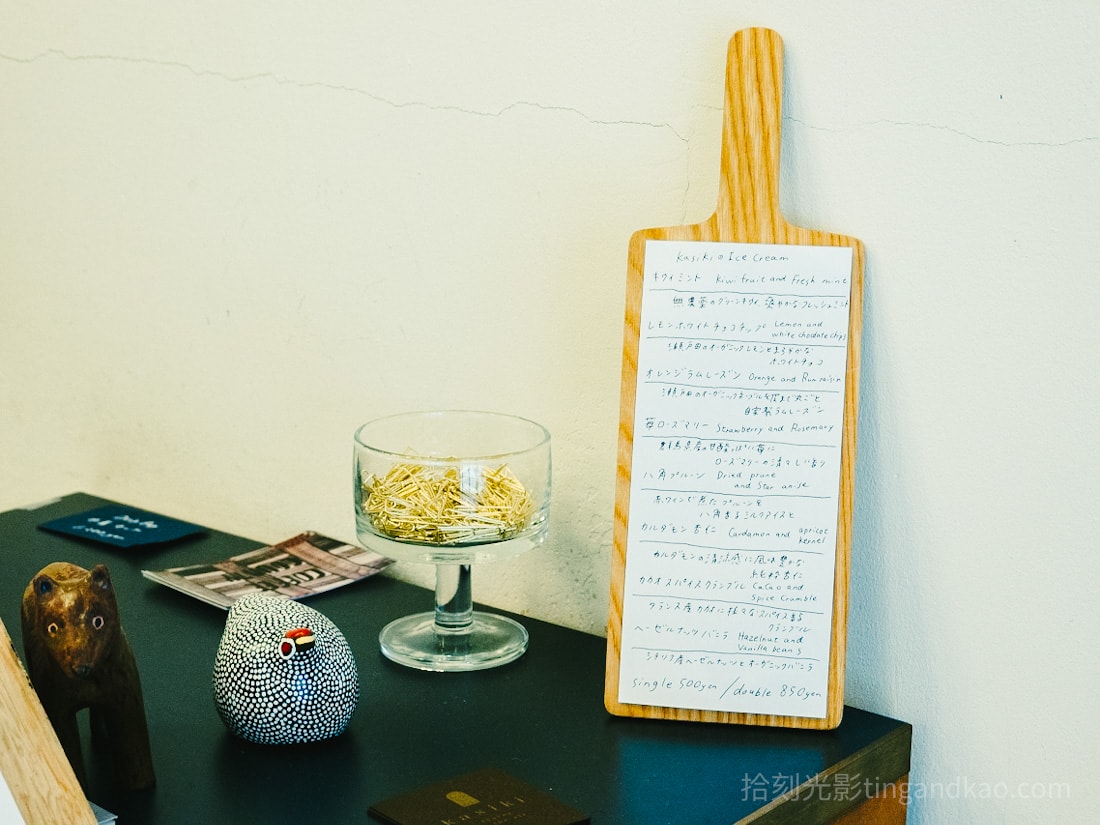 kasikiのIce Cream
キウイミント Kiwi fruit and fresh mint
無農薬のグリーンキウイ 爽やかなフレッシュミント
レモンホワイトチョコチップ Lemon and
white chocolate chips
瀬戸田のオーガニックレモンとまろやかな
ホワイトチョコ
オレンジラムレーズン Orange and Rum raisin
瀬戸田のオーガニックネーブルを皮まで丸ごと
自家製ラムレーズン
苺ローズマリー Strawberry and Rosemary
群馬県産の甘酸っぱい苺に
ローズマリーの清々しい香り
八角プルーン Dried prune
and Star anise
赤ワインで煮たプルーンを
八角香るミルクアイスと
カルダモン杏仁 Cardamon and apricot
kernel
カルダモンの清涼感に風味豊かな
杏仁
カカオスパイスクランブル Cacao and
Spice Crumble
フランス産カカオに様々なスパイス香る
クランブル
ヘーゼルナッツバニラ Hazelnut and
Vanilla beans
シチリア産ヘーゼルナッツとオーガニックバニラ
single 500yen / double 850yen
kasiki
拾刻光影tingandkao.com